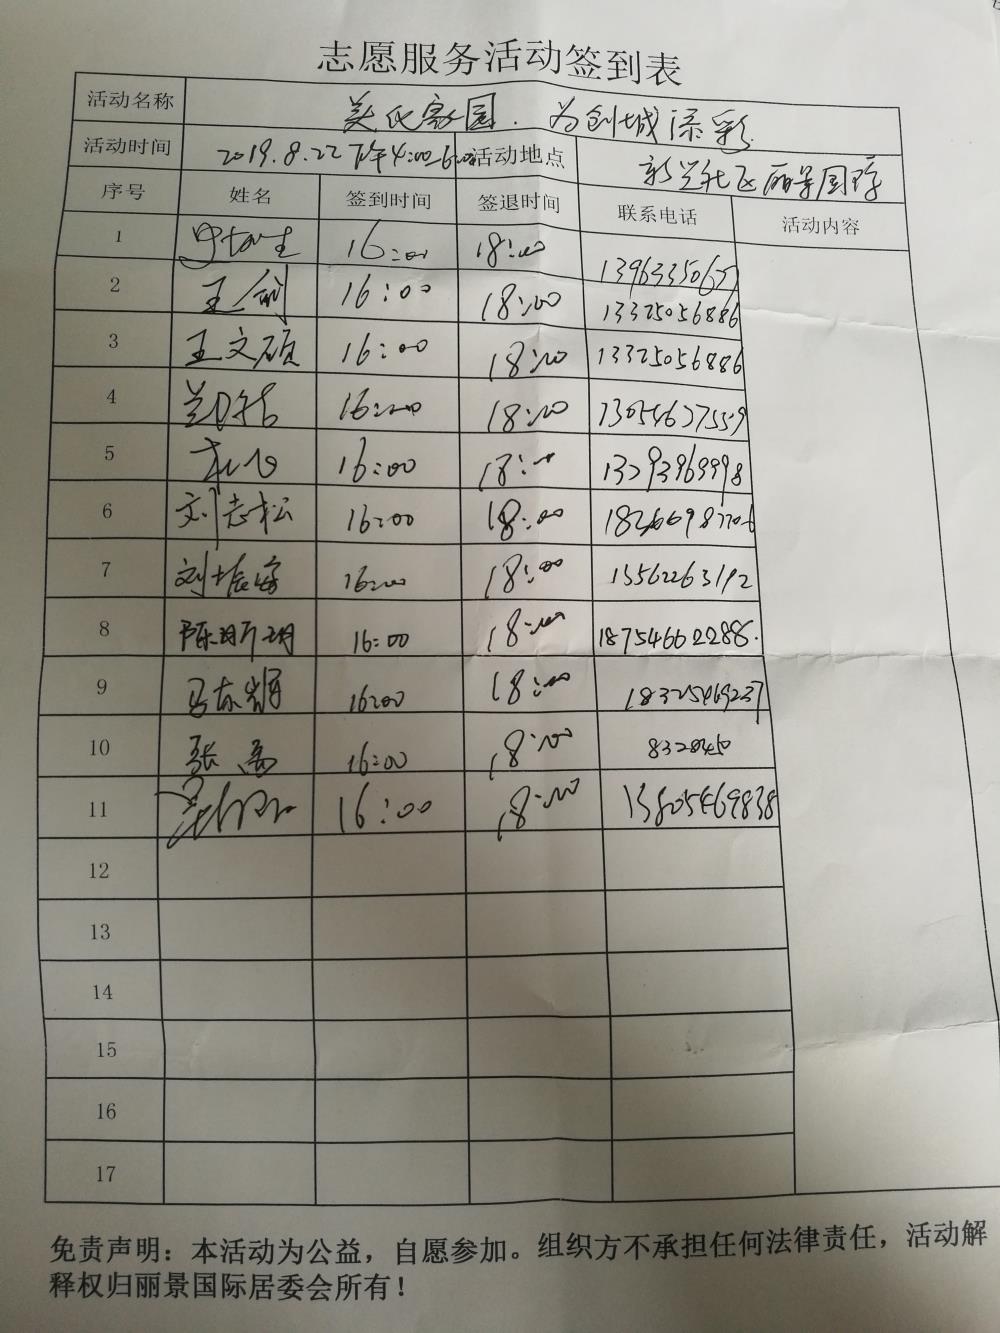 志愿服务活动签到表
活动名称 美化家园.为创城添彩
活动时间 2019.8.22下午4:00-6:00 活动地点 新兴社区丽景国际
序号 姓名 签到时间 签退时间 联系电话 活动内容
1 16:00 18:00
2 王剑 16:00 18:00 13325056886
3 王文硕 16:00 18:00 13325056886
4 16:00 18:00 13054637559
5 16:00 18:00 13293969998
6 刘志松 16:00 18:00
7 刘振海 16:00 18:00 13562263192
8 陈明 16:00 18:00 18754660228
9 马东 16:00 18:00 18325469237
10 张高 16:00 18:00 8320450
11 16:00 18:00 13805469838
12
13
14
15
16
17
免责声明：本活动为公益，自愿参加。组织方不承担任何法律责任，活动解
释权归丽景国际居委会所有！